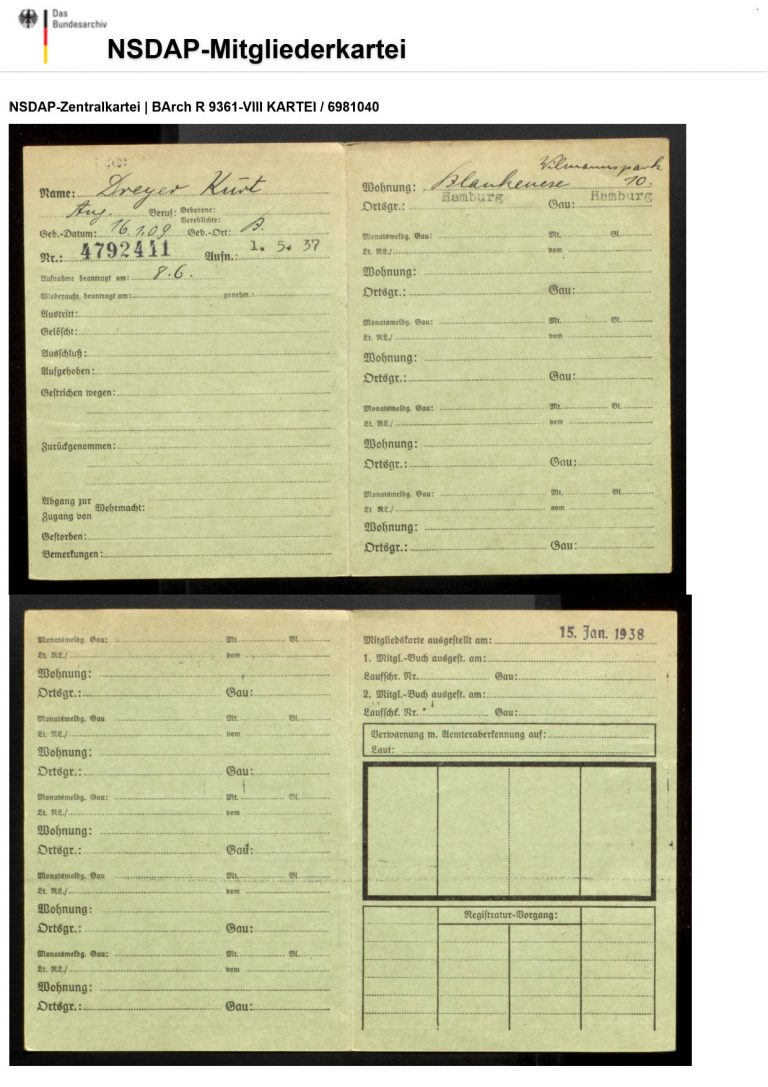 Das
Bundesarchiv
NSDAP-Mitgliederkartei
NSDAP-Zentralkartei | BArch R 9361-VIII KARTEI / 6981040
Name: Dreyer Kurt
Ang. Beruf: Geborene:
Verehlichte:
Geb.-Datum: 16.1.09 Geb.-Ort: B.
Nr.: 4792441 Aufn.: 1. 5. 37
Aufnahme beantragt am: 8.6.
Wiederaufn. beantragt am: genehm.:
Austritt:
Gelöscht:
Ausschluß:
Aufgehoben:
Gestrichen wegen:
Zurückgenommen:
Abgang zur
Wehrmacht:
Zugang von
Gestorben:
Bemerkungen:
Wilmannspark
Wohnung: Blankenese 10.
Ortsgr.: Hamburg Gau: Hamburg
Monatsmeldg. Gau: Mt. Bl.
Lt. RL/ vom
Wohnung:
Ortsgr.: Gau:
Monatsmeldg. Gau: Mt. Bl.
Lt. RL/ vom
Wohnung:
Ortsgr.: Gau:
Monatsmeldg. Gau: Mt. Bl.
Lt. RL/ vom
Wohnung:
Ortsgr.: Gau:
Monatsmeldg. Gau: Mt. Bl.
Lt RL/ vom
Wohnung:
Ortsgr.: Gau:
Monatsmeldg. Gau: Mt. Bl.
Lt. RL/ vom
Wohnung:
Ortsgr.: Gau:
Monatsmeldg. Gau Mt. Bl.
Lt. RL/ vom
Wohnung:
Ortsgr.: Gau:
Monatsmeldg. Gau: Mt. Bl.
Lt. RL/ vom
Wohnung:
Ortsgr.: Gau:
Monatsmeldg. Gau Mt. Bl.
Lt. RL/ vom
Wohnung:
Ortsgr.: Gau:
Monatsmeldg. Gau: Mt. Bl.
Lt. RL/ vom
Wohnung:
Ortsgr.: Gau:
Mitgliedskarte ausgestellt am: 15. Jan. 1938
1. Mitgl.-Buch ausgest. am:
Laufschr. Nr. Gau:
2. Mitgl.-Buch ausgest. am:
Laufschr. Nr. Gau:
Verwarnung m. Aemteraberkennung auf:
Laut:
Registratur-Vorgang: